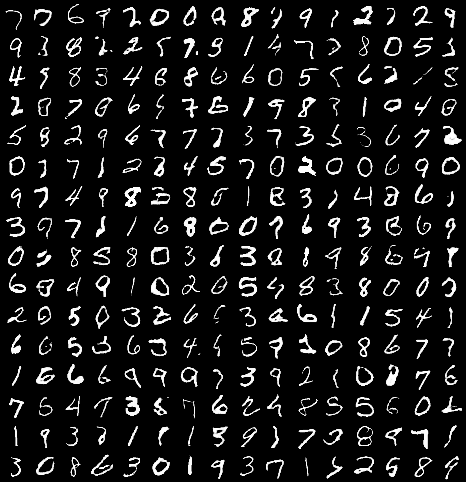 7 0 6 9 2 0 0 9 8 7 9 7 2 7 2 9
9 3 8 2 2 5 7 9 1 4 7 7 8 0 5 3
4 9 8 3 4 8 8 6 6 0 5 5 6 2 1 5
2 8 7 8 6 5 7 8 1 9 8 3 1 0 4 8
5 8 2 9 6 7 7 7 3 7 3 5 3 6 7 2
0 7 7 1 2 8 4 5 7 0 2 0 0 6 9 0
9 7 4 9 8 3 8 5 1 8 3 1 4 8 6 1
3 9 7 1 1 6 8 0 0 7 6 9 3 8 6 9
0 5 8 5 8 0 3 6 3 8 1 9 8 6 9 9
6 8 4 9 1 0 2 0 5 4 8 3 8 0 0 3
2 0 5 0 3 3 6 6 3 2 6 1 1 5 4 1
6 6 5 3 6 3 4 4 5 9 2 0 8 6 7 7
1 6 6 6 9 9 9 7 3 9 2 1 0 8 7 6
7 6 4 7 3 8 7 6 2 4 8 5 5 6 0 2
1 9 3 3 1 1 1 5 9 3 7 7 8 9 7 1
3 0 8 6 3 0 1 9 3 7 1 5 2 5 8 9